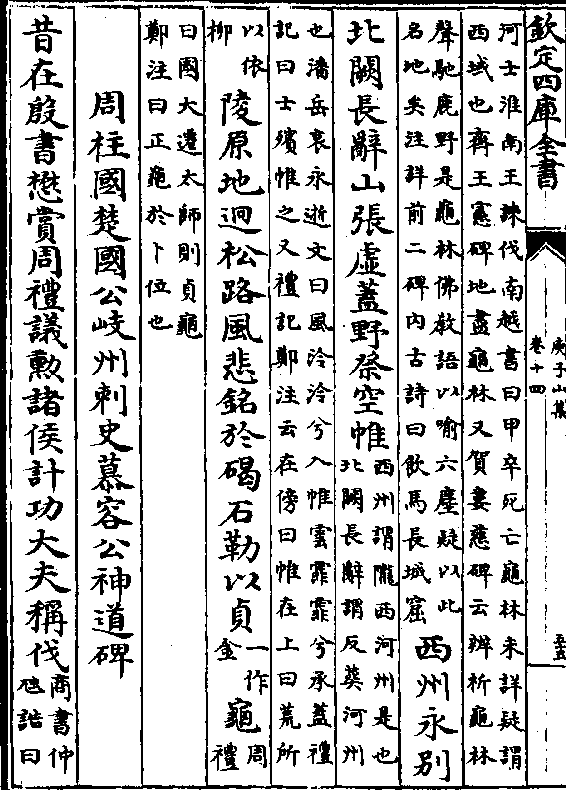 欽定四庫全書
庾子山集
卷十四
河士淮南王諫伐南越書曰甲卒死亡龜林未詳疑謂
西域也齊王憲碑地盡龜林又賀婁慈碑云辨析龜林
聲馳鹿野是龜林佛教語以喻六塵疑以此
名地矣注詳前二碑內古詩曰飲馬長城窟
西州永別
北闕長辭山張虛蓋野祭空帷
西州謂隴西河州是也
北闕長辭謂反葬河州
也潘岳哀永逝文曰風泠泠兮入帷雲霏霏兮承蓋禮
記曰士殯帷之又禮記鄭注云在傍曰帷在上曰荒所
以依
柳
陵原地迥松路風悲銘於碣石勒以貞
一作
金
龜
周
禮
曰國大遷太師則貞龜
鄭注曰正龜於卜位也
周柱國楚國公岐州刺史慕容公神道碑
昔在殷書懋賞周禮議勲諸侯計功大夫稱伐
商書仲
虺誥曰